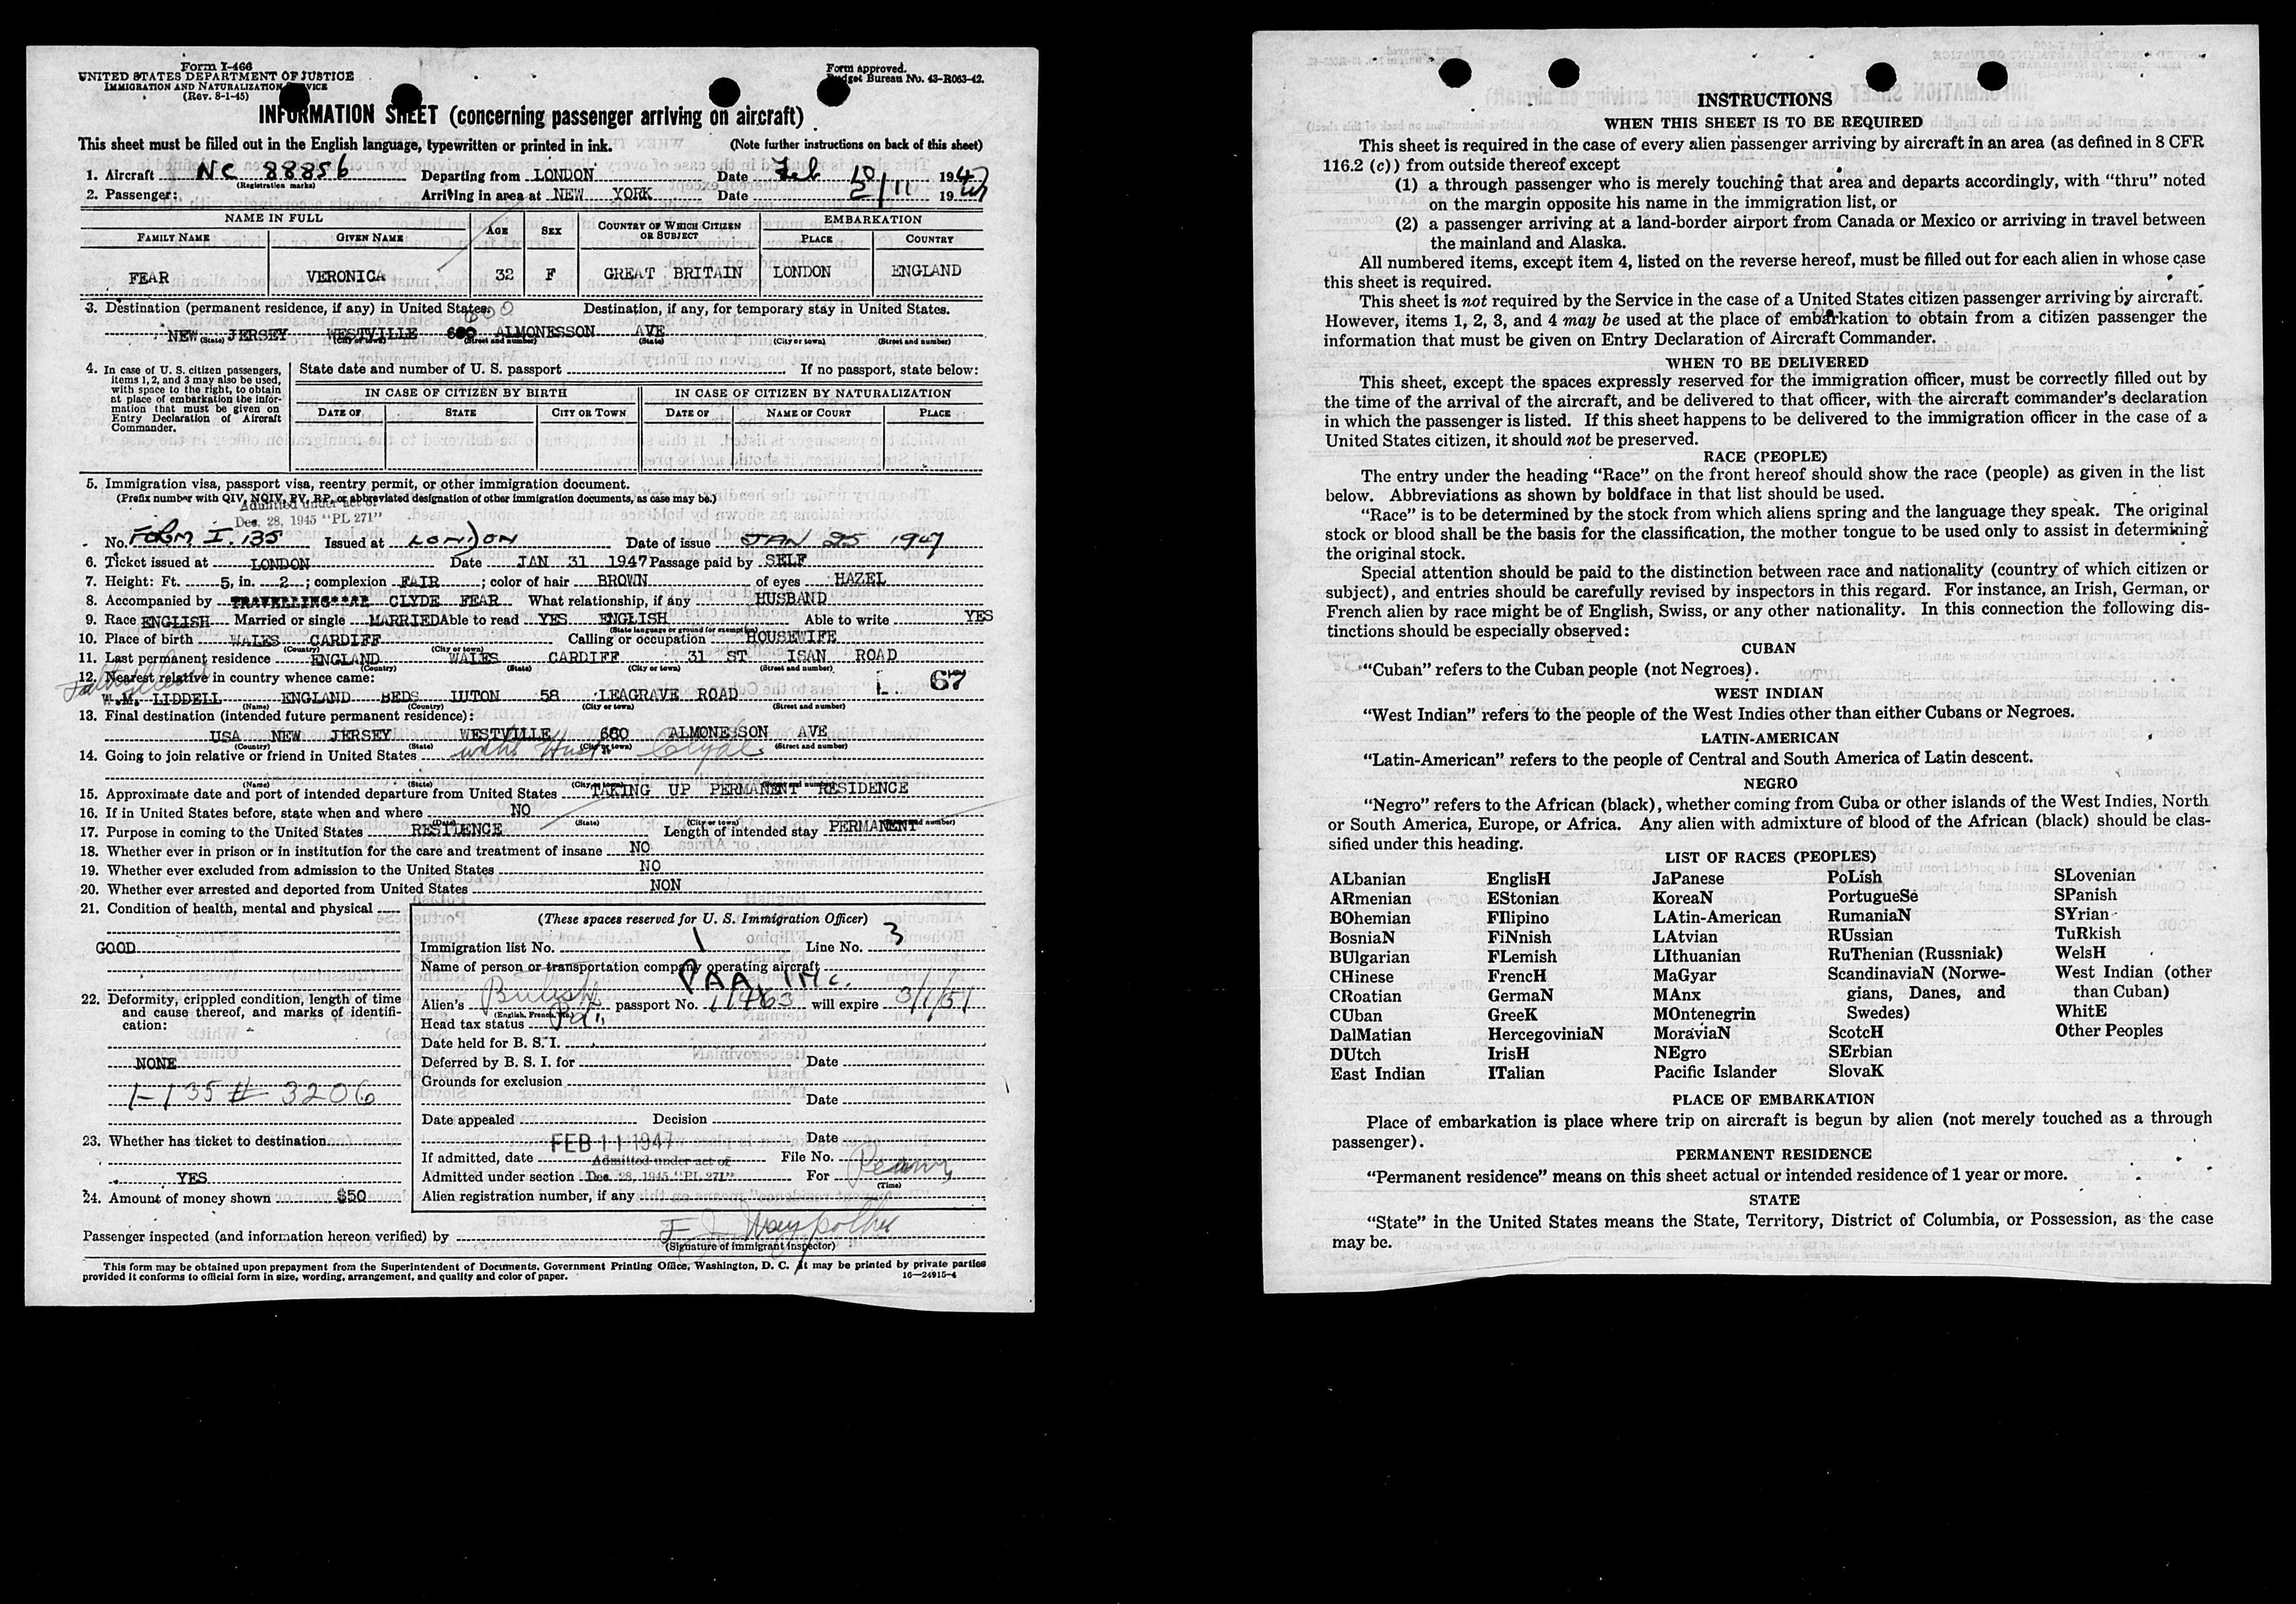 Form I-466
UNITED STATES DEPARTMENT OF JUSTICE
IMMIGRATION AND NATURALIZATION SERVICE
(Rev. 8-1-45)
Form approved.
Budget Bureau No. 43-R063-42.
INFORMATION SHEET (concerning passenger arriving on aircraft)
This sheet must be filled out in the English language, typewritten or printed in ink. (Note further instructions on back of this sheet)
1. Aircraft NC 88856 Departing from LONDON Date Feb 10 1947
(Registration marks)
2. Passenger: Arriving in area at NEW YORK Date 2/11 1947
NAME IN FULL AGE SEX COUNTRY OF WHICH CITIZEN OR SUBJECT EMBARKATION
FAMILY NAME GIVEN NAME PLACE COUNTRY
FEAR VERONICA 32 F GREAT BRITAIN LONDON ENGLAND
3. Destination (permanent residence, if any) in United States. Destination, if any, for temporary stay in United States.
600
NEW JERSEY WESTVILLE 680 ALMONESSON AVE
(State) (City or town) (Street and number) (State) (City or town) (Street and number)
4. In case of U. S. citizen passengers, items 1, 2, and 3 may also be used, with space to the right, to obtain at place of embarkation the information that must be given on Entry Declaration of Aircraft Commander.
State date and number of U. S. passport If no passport, state below:
IN CASE OF CITIZEN BY BIRTH IN CASE OF CITIZEN BY NATURALIZATION
DATE OF STATE CITY OR TOWN DATE OF NAME OF COURT PLACE
5. Immigration visa, passport visa, reentry permit, or other immigration document.
(Prefix number with QIV, NQIV, PV, RP, or abbreviated designation of other immigration documents, as case may be.)
Admitted under act of
Dec. 28, 1945 "PL 271"
No. FORM I. 135 Issued at LONDON Date of issue JAN 25 1947
6. Ticket issued at LONDON Date JAN 31 1947 Passage paid by SELF
7. Height: Ft. 5, in. 2; complexion FAIR; color of hair BROWN of eyes HAZEL
8. Accompanied by CLYDE FEAR What relationship, if any HUSBAND
9. Race ENGLISH Married or single MARRIED Able to read YES ENGLISH Able to write YES
(State language or ground for exemption)
10. Place of birth WALES CARDIFF Calling or occupation HOUSEWIFE
(Country) (City or town)
11. Last permanent residence ENGLAND WALES CARDIFF 31 ST ISAN ROAD
(Country) (State) (City or town) (Street and number)
12. Nearest relative in country whence came:
W.M. LIDDELL ENGLAND BEDS LUTON 58 LEAGRAVE ROAD L 67
(Name) (Country) (City or town) (Street and number)
13. Final destination (intended future permanent residence):
USA NEW JERSEY WESTVILLE 680 ALMONESSON AVE
(Country) (State) (City or town) (Street and number)
14. Going to join relative or friend in United States with Husb Clyde
(Name) (State) (City or town) (Street and number)
15. Approximate date and port of intended departure from United States TAKING UP PERMANENT RESIDENCE
16. If in United States before, state when and where NO
(Date) (State) (City or town) (Street and number)
17. Purpose in coming to the United States RESIDENCE Length of intended stay PERMANENT
18. Whether ever in prison or in institution for the care and treatment of insane NO
19. Whether ever excluded from admission to the United States NO
20. Whether ever arrested and deported from United States NON
21. Condition of health, mental and physical
GOOD
22. Deformity, crippled condition, length of time and cause thereof, and marks of identification:
NONE
I-135 # 3206
23. Whether has ticket to destination
YES
24. Amount of money shown $50
(These spaces reserved for U. S. Immigration Officer)
Immigration list No. 1 Line No. 3
Name of person or transportation company operating aircraft
PAA, Inc.
Alien's British passport No. 11463 will expire 3/1/51
(English, French, etc.)
Head tax status Pd.
Date held for B. S. I.
Deferred by B. S. I. for Date
Grounds for exclusion
Date
Date appealed Decision
Date
If admitted, date FEB 11 1947 File No.
Admitted under act of
Admitted under section Dec. 28, 1945 "PL 271" For
(Time)
Alien registration number, if any
Passenger inspected (and information hereon verified) by
(Signature of immigrant inspector)
This form may be obtained upon prepayment from the Superintendent of Documents, Government Printing Office, Washington, D. C. It may be printed by private parties
provided it conforms to official form in size, wording, arrangement, and quality and color of paper. 16—24915-4
INSTRUCTIONS
WHEN THIS SHEET IS TO BE REQUIRED
This sheet is required in the case of every alien passenger arriving by aircraft in an area (as defined in 8 CFR
116.2 (c)) from outside thereof except
(1) a through passenger who is merely touching that area and departs accordingly, with "thru" noted
on the margin opposite his name in the immigration list, or
(2) a passenger arriving at a land-border airport from Canada or Mexico or arriving in travel between
the mainland and Alaska.
All numbered items, except item 4, listed on the reverse hereof, must be filled out for each alien in whose case
this sheet is required.
This sheet is not required by the Service in the case of a United States citizen passenger arriving by aircraft.
However, items 1, 2, 3, and 4 may be used at the place of embarkation to obtain from a citizen passenger the
information that must be given on Entry Declaration of Aircraft Commander.
WHEN TO BE DELIVERED
This sheet, except the spaces expressly reserved for the immigration officer, must be correctly filled out by
the time of the arrival of the aircraft, and be delivered to that officer, with the aircraft commander's declaration
in which the passenger is listed. If this sheet happens to be delivered to the immigration officer in the case of a
United States citizen, it should not be preserved.
RACE (PEOPLE)
The entry under the heading "Race" on the front hereof should show the race (people) as given in the list
below. Abbreviations as shown by boldface in that list should be used.
"Race" is to be determined by the stock from which aliens spring and the language they speak. The original
stock or blood shall be the basis for the classification, the mother tongue to be used only to assist in determining
the original stock.
Special attention should be paid to the distinction between race and nationality (country of which citizen or
subject), and entries should be carefully revised by inspectors in this regard. For instance, an Irish, German, or
French alien by race might be of English, Swiss, or any other nationality. In this connection the following dis-
tinctions should be especially observed:
CUBAN
"Cuban" refers to the Cuban people (not Negroes).
WEST INDIAN
"West Indian" refers to the people of the West Indies other than either Cubans or Negroes.
LATIN-AMERICAN
"Latin-American" refers to the people of Central and South America of Latin descent.
NEGRO
"Negro" refers to the African (black), whether coming from Cuba or other islands of the West Indies, North
or South America, Europe, or Africa. Any alien with admixture of blood of the African (black) should be clas-
sified under this heading.
LIST OF RACES (PEOPLES)
ALbanian EnglisH JaPanese PoLish SLovenian
ARmenian EStonian KoreaN PortugueSe SPanish
BOhemian FIlipino LAtin-American RumaniaN SYrian
BosniaN FiNnish LAtvian RUssian TuRkish
BUlgarian FLemish LIthuanian RuThenian (Russniak) WelsH
CHinese FrencH MaGyar ScandinaviaN (Norwe- West Indian (other
CRoatian GermaN MAnx gians, Danes, and than Cuban)
CUban GreeK MOntenegrin Swedes) WhitE
DalMatian HercegoviniaN MoraviaN ScotcH Other Peoples
DUtch IrisH NEgro SErbian
East Indian ITalian Pacific Islander SlovaK
PLACE OF EMBARKATION
Place of embarkation is place where trip on aircraft is begun by alien (not merely touched as a through
passenger).
PERMANENT RESIDENCE
"Permanent residence" means on this sheet actual or intended residence of 1 year or more.
STATE
"State" in the United States means the State, Territory, District of Columbia, or Possession, as the case
may be.